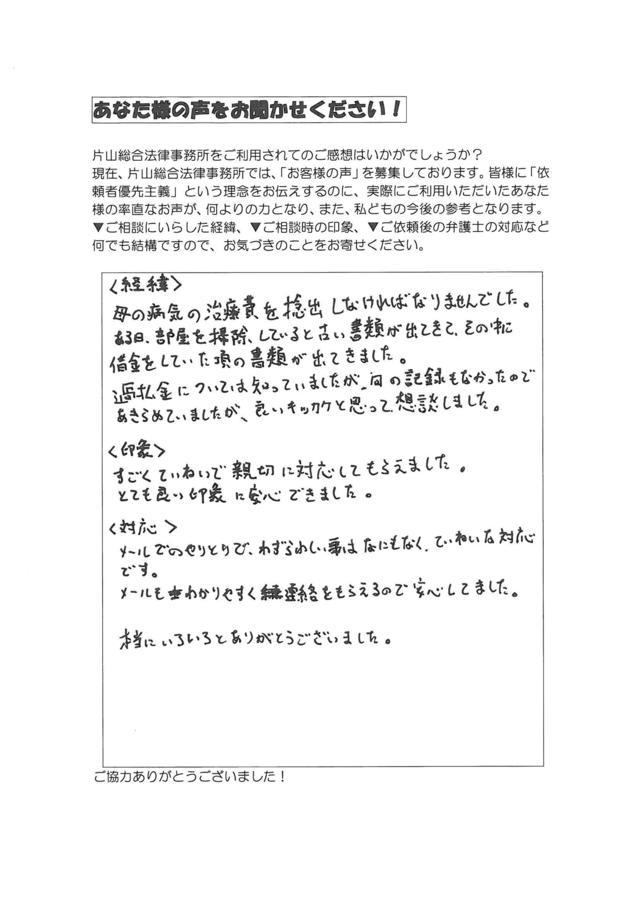 あなた様の声をお聞かせください！
片山総合法律事務所をご利用されてのご感想はいかがでしょうか？
現在、片山総合法律事務所では、「お客様の声」を募集しております。皆様に「依
頼者優先主義」という理念をお伝えするのに、実際にご利用いただいたあなた
様の率直なお声が、何よりの力となり、また、私どもの今後の参考となります。
▼ご相談にいらした経緯、▼ご相談時の印象、▼ご依頼後の弁護士の対応など
何でも結構ですので、お気づきのことをお寄せください。
＜経緯＞
母の病気の治療費を捻出しなければなりませんでした。
ある日、部屋を掃除、していると古い書類が出てきて、その中に
借金をしていた頃の書類が出てきました。
過払金については知っていましたが、何の記録もなかったので
あきらめていましたが、良いキッカケと思って想談しました。
＜印象＞
すごくていねいで親切に対応してもらえました。
とても良い印象に安心できました。
＜対応＞
メールでのやりとりで、わずらわしい事はなにもなく、ていねいな対応
です。
メールもわかりやすく連絡をもらえるので安心してました。
本当にいろいろとありがとうございました。
ご協力ありがとうございました！